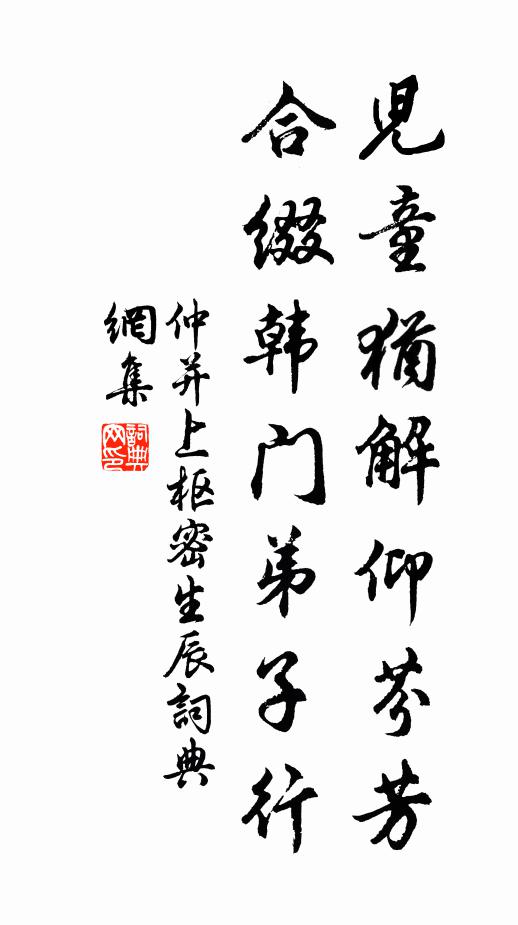 兒童猶解仰芬芳
合綴韩门弟子行
仲并上枢密生辰詞典
網集
詞典網印